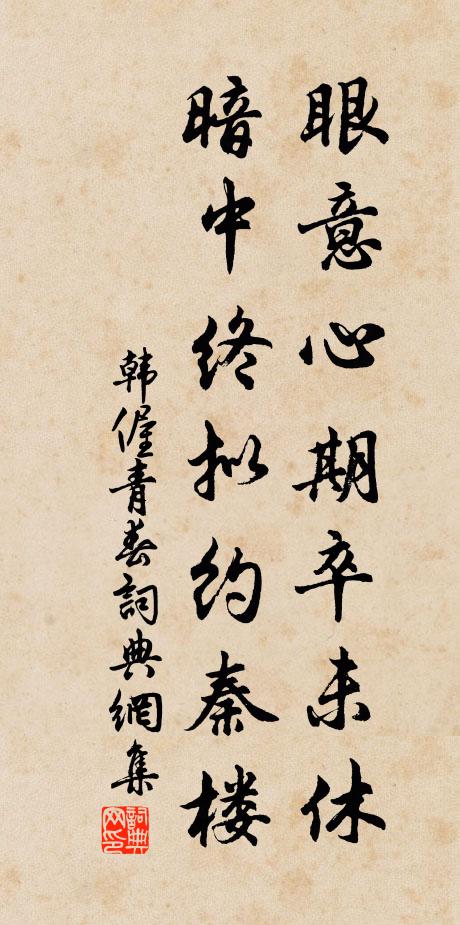 眼意心期卒未休
暗中终拟约秦楼
韩偓青春詞典網集
詞典
网印